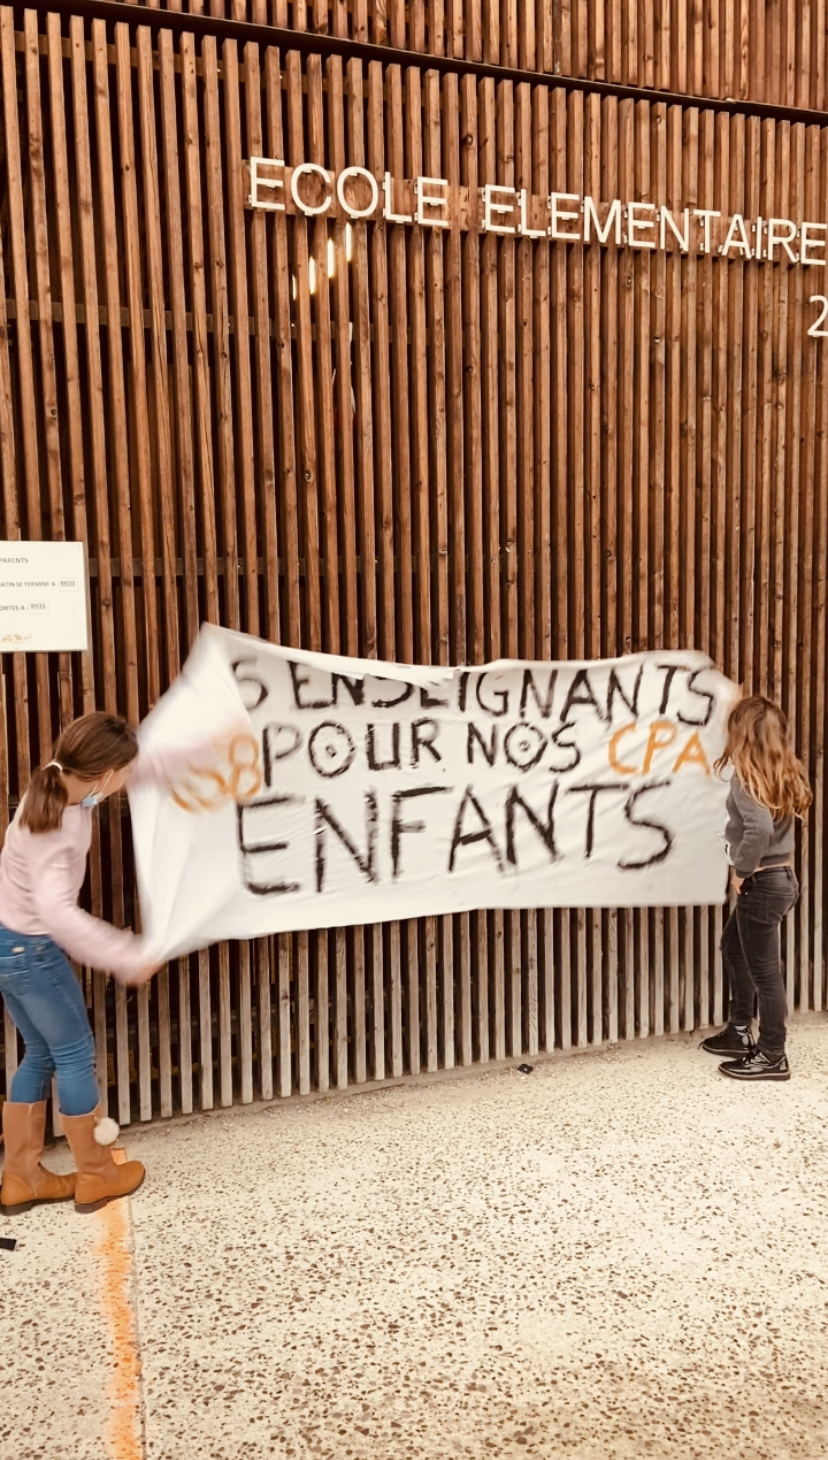 ECOLE ELEMENTAIRE
2
PARENTS
MATIN SE TERMINE A : 8H30
PORTES A : 8H35
S ENSEIGNANTS
POUR NOS CPA
ENFANTS